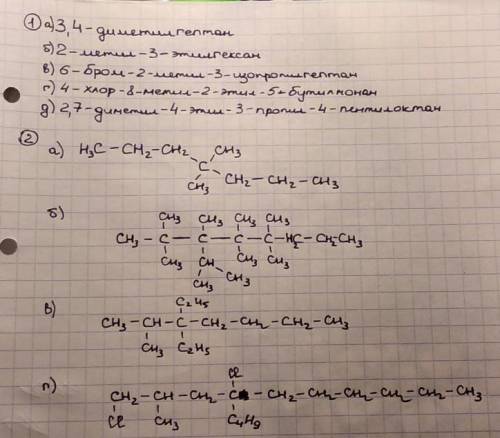 ① а) 3,4-диметилгептан
б) 2-метил-3-этилгексан
в) 6-бром-2-метил-3-изопропилгептан
г) 4-хлор-8-метил-2-этил-5-бутилнонан
д) 2,7-диметил-4-этил-3-пропил-4-пентилоктан
②
а) H₃C-CH₂-CH₂ CH₃
C
CH₃ CH₂-CH₂-CH₃
б)
CH₃ CH₃ CH₃ CH₃
CH₃-C-C-C-C-H₂C-CH₂CH₃
CH₃ CH CH₃ CH₃
CH₃ CH₃
в) C₂H₅
CH₃-CH-C-CH₂-CH₂-CH₂-CH₃
CH₃ C₂H₅
г) Cl
CH₂-CH-CH₂-C-CH₂-CH₂-CH₂-CH₂-CH₂-CH₃
Cl CH₃ C₄H₉